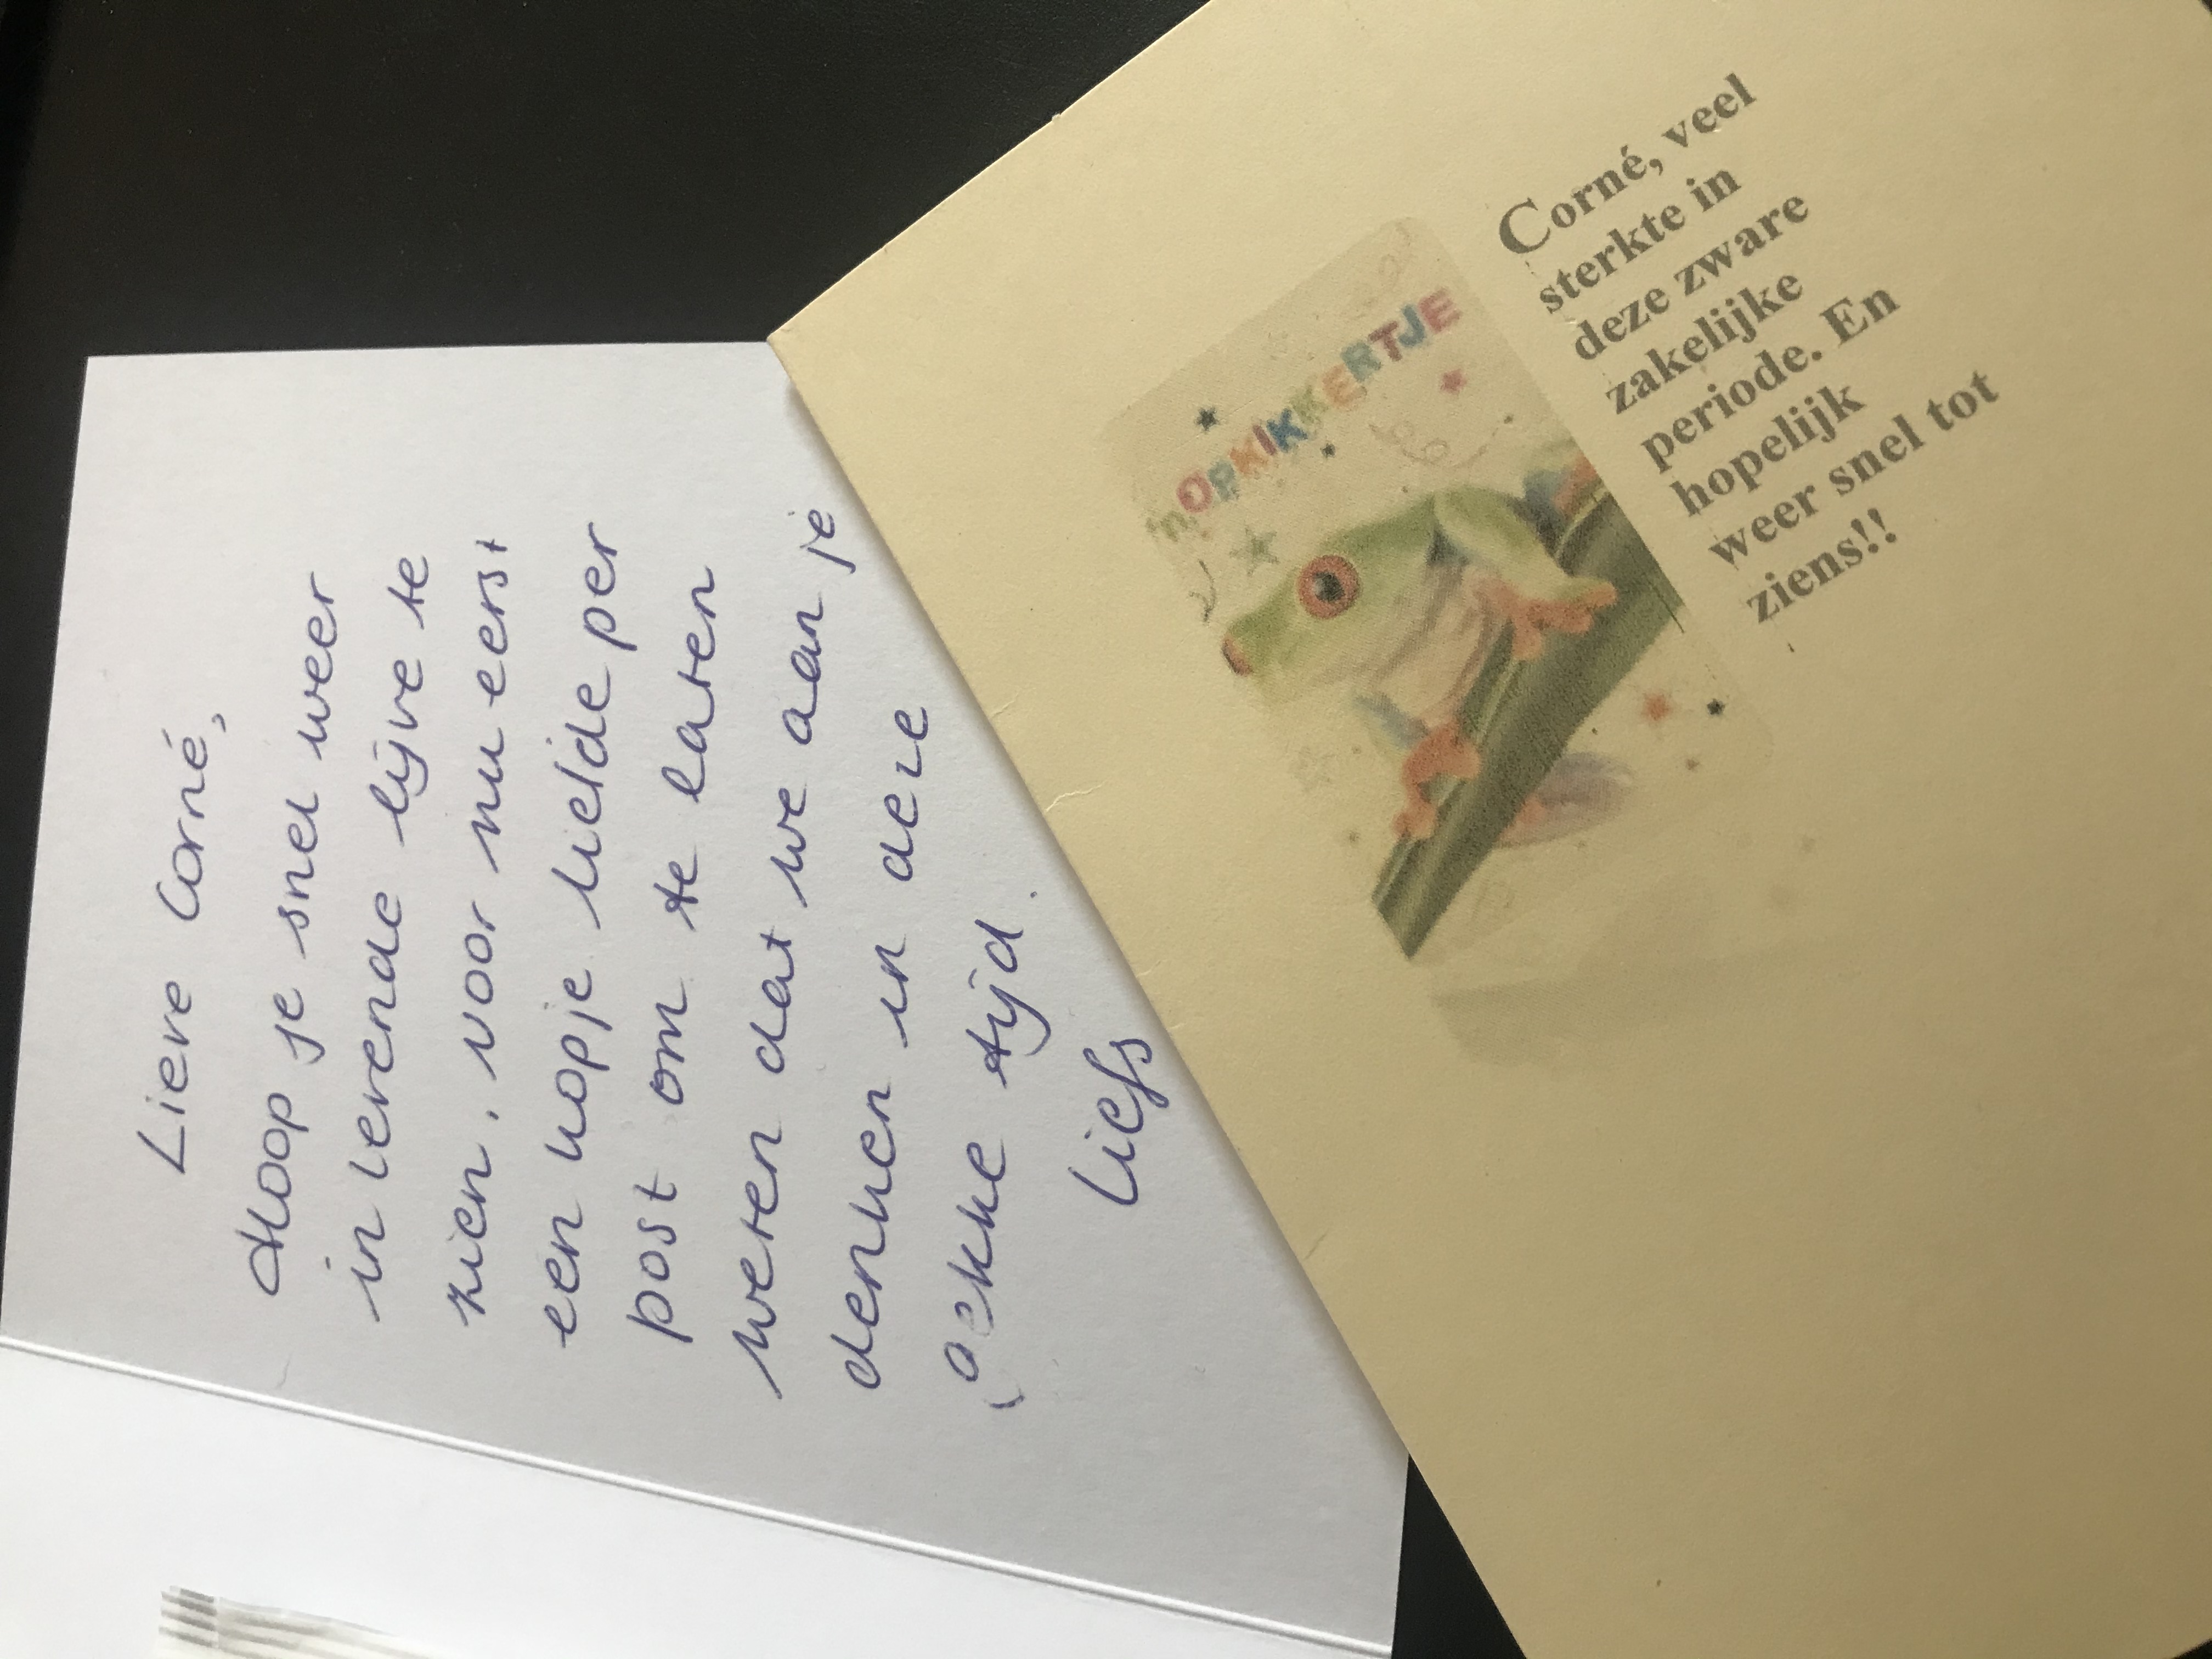 Lieve Corné,
Hoop je snel weer
in levende lijve te
zien. Voor nu eerst
een kopje liefde per
post om te laten
weten dat we aan je
denken in deze
gekke tijd.
Liefs
'n OPKIKKERTJE
Corné, veel
sterkte in
deze zware
zakelijke
periode. En
hopelijk
weer snel tot
ziens!!